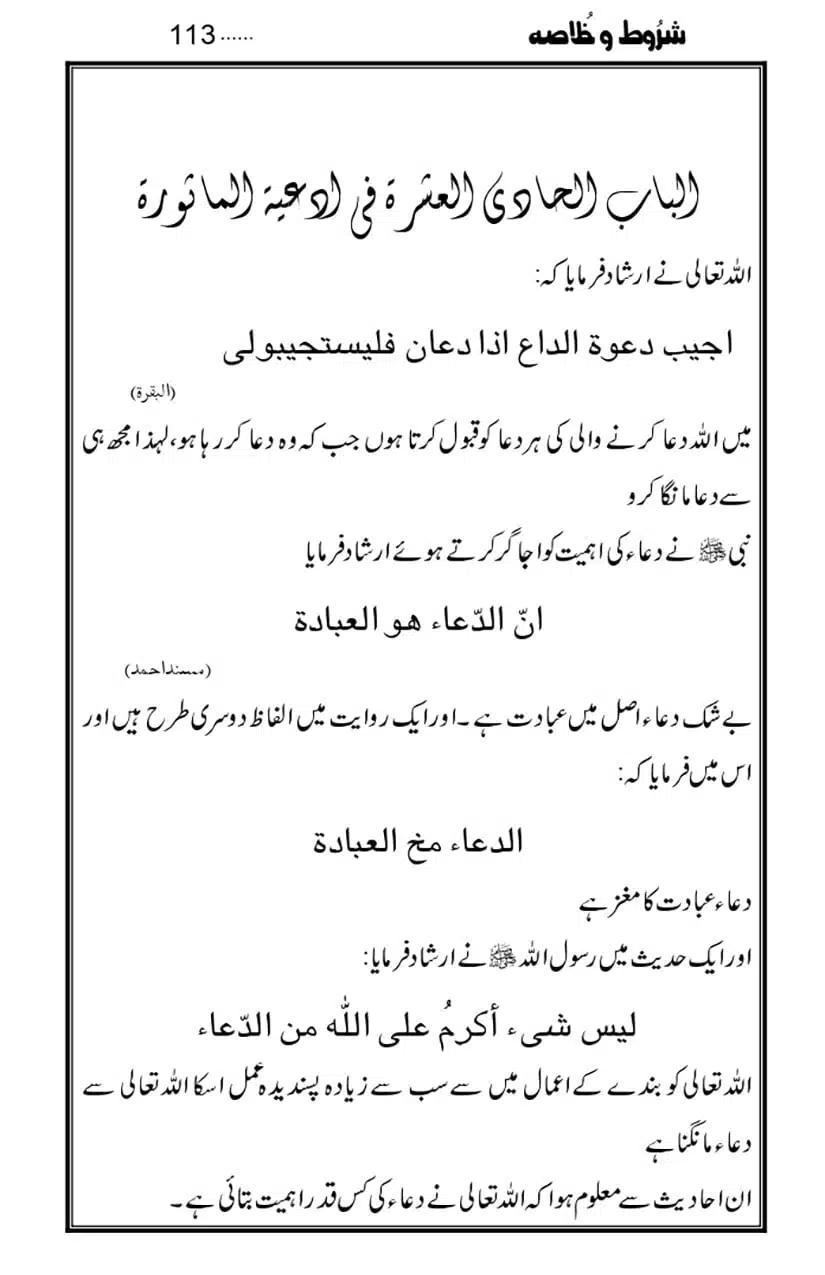 شرُوط و خُلاصه ......113
الباب الحادی العشرۃ فی ادعیۃ الماثورۃ
اللہ تعالی نے ارشاد فرمایا کہ:
اجیب دعوۃ الداع اذا دعان فلیستجیبولی
(البقرۃ)
میں اللہ دعا کرنے والی کی ہر دعا کو قبول کرتا ہوں جب کہ وہ دعا کر رہا ہو، لہذا مجھ ہی
سے دعا مانگا کرو
نبی ﷺ نے دعاء کی اہمیت کو اجاگر کرتے ہوئے ارشاد فرمایا
انّ الدّعاء ھو العبادۃ
(مسند احمد)
بے شک دعاء اصل میں عبادت ہے ۔اور ایک روایت میں الفاظ دوسری طرح ہیں اور
اس میں فرمایا کہ:
الدعاء مخ العبادۃ
دعاء عبادت کا مغز ہے
اور ایک حدیث میں رسول اللہ ﷺ نے ارشاد فرمایا:
لیس شیء أکرمُ علی اللّٰہ من الدّعاء
اللہ تعالی کو بندے کے اعمال میں سے سب سے زیادہ پسندیدہ عمل اسکا اللہ تعالی سے
دعاء مانگنا ہے
ان احادیث سے معلوم ہوا کہ اللہ تعالی نے دعاء کی کس قدر اہمیت بتائی ہے ۔